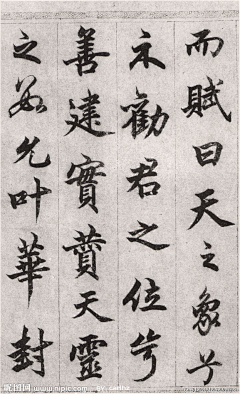 而賦曰天之象兮
示勸君之位兮
善建實天靈
之允叶華封
昵图网 www.nipic.com BY: